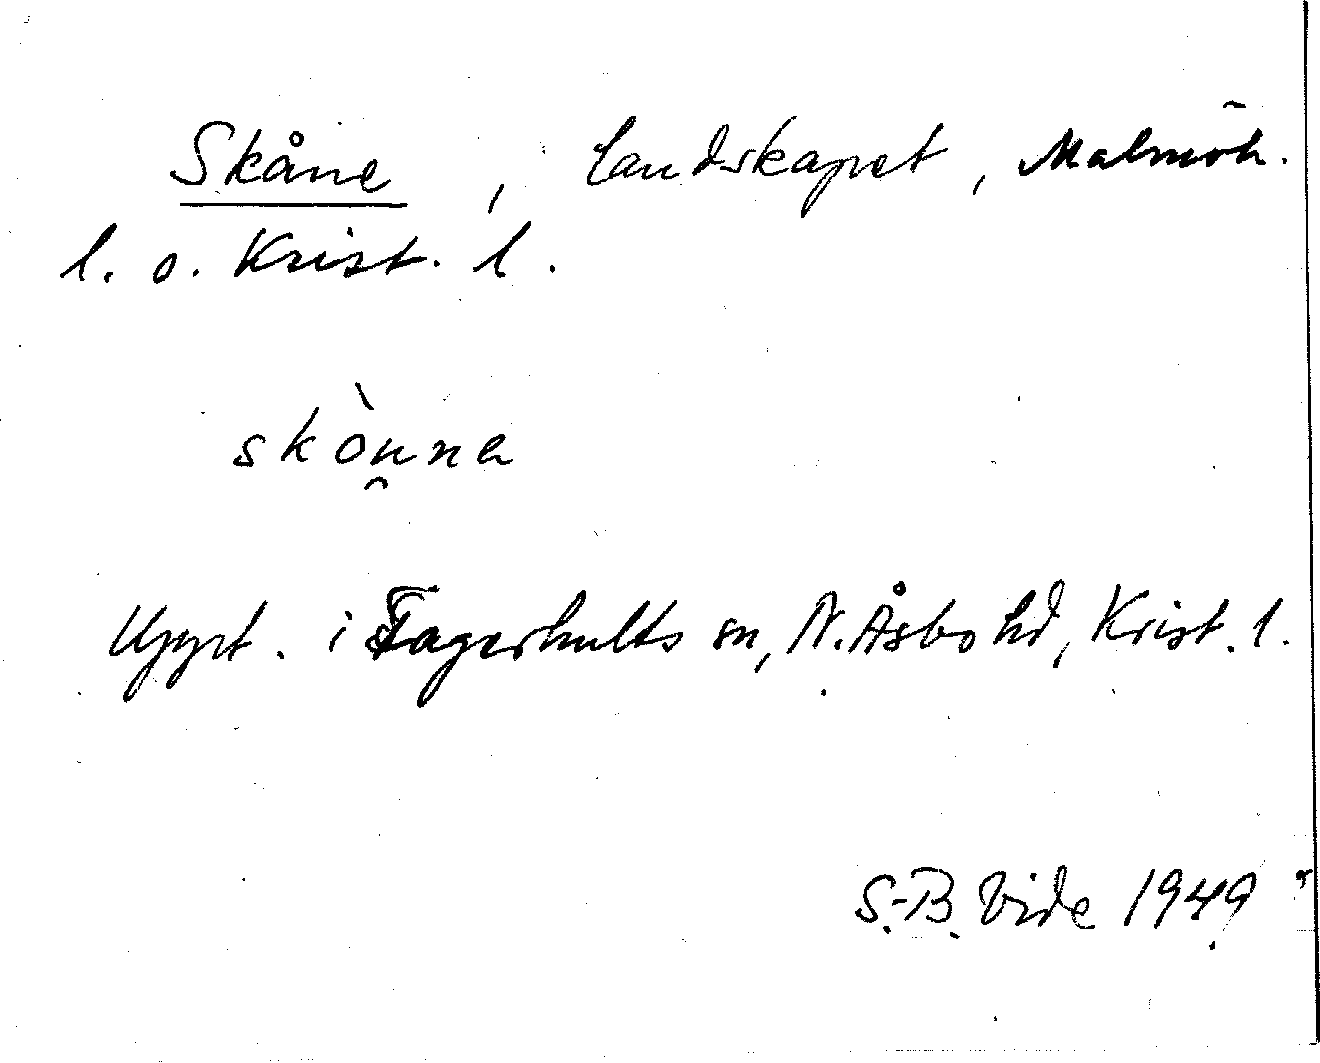 Skåne, landskapet, Malmöh.
l. o. Krist. l.
skòu̯na
Uppt. i Fagerhults sn, N. Åsbo hd, Krist. l.
S.-B. Vide 1949